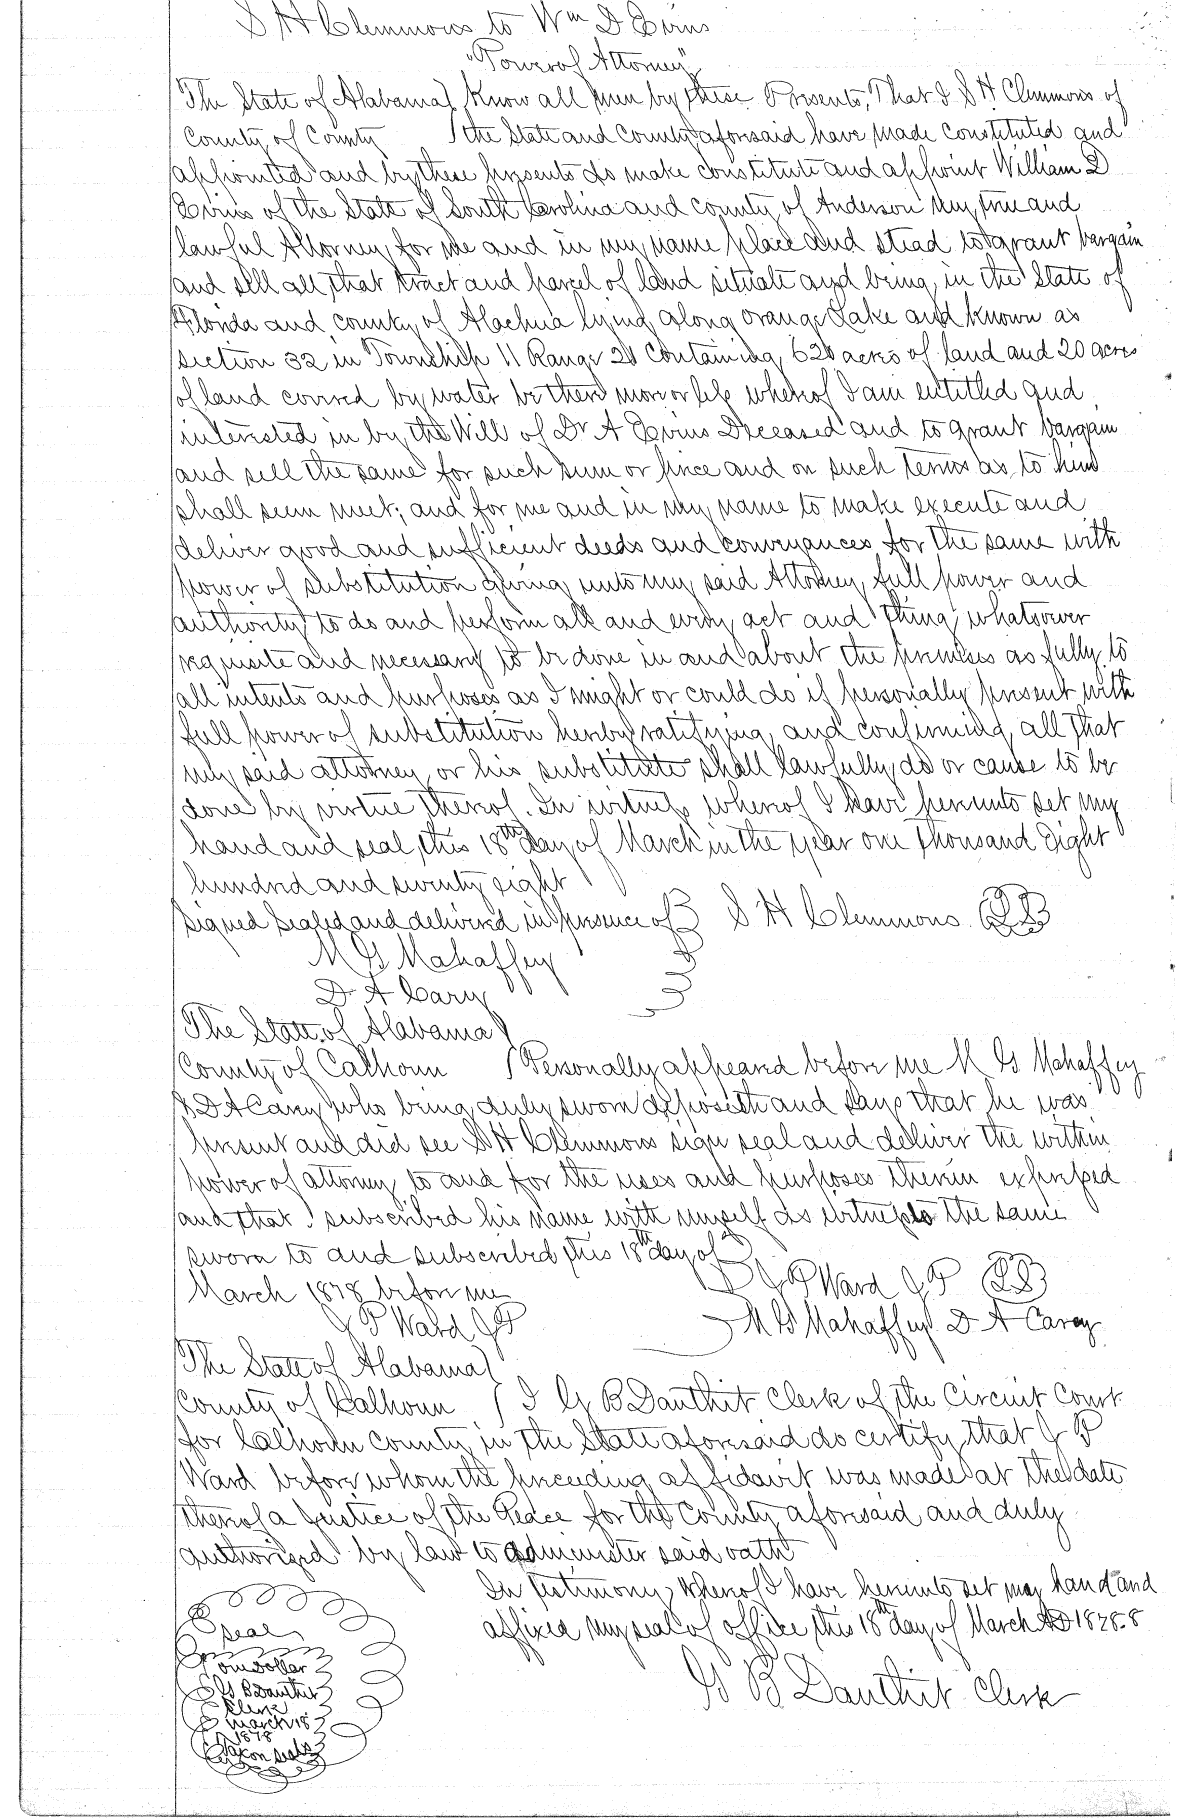 S H Clemmons to Wm D Evins
"Power of Attorney"
The State of Alabama } Know all men by these Presents, That I S H Clemmons of
County of County } the State and County aforesaid have made constituted and
appointed and by these presents do make constitute and appoint William D
Evins of the State of South Carolina and county of Anderson my true and
lawful Attorney for me and in my name place and stead to grant bargain
and sell all that tract and parcel of land situate and being in the State of
Florida and county of Alachua lying along orange Lake and known as
section 32 in Township 11 Range 21 containing 620 acres of land and 20 acres
of land covered by water be there more or less whereof I am entitled and
interested in by the Will of Dr A Evins Deceased and to grant bargain
and sell the same for such sum or price and on such terms as to him
shall seem meet; and for me and in my name to make execute and
deliver good and sufficient deeds and conveyances for the same with
power of substitution giving unto my said Attorney full power and
authority to do and perform all and every act and thing whatsoever
requisite and necessary to be done in and about the premises as fully to
all intents and purposes as I might or could do if personally present with
full power of substitution hereby ratifying and confirming all that
my said attorney or his substitute shall lawfully do or cause to be
done by virtue thereof. In witness whereof I have hereunto set my
hand and seal this 18th day of March in the year one thousand Eight
hundred and seventy eight
Signed Sealed and delivered in presence of } S H Clemmons LS
M G Mahaffey
D A Cary
The State of Alabama }
County of Calhoun } Personally appeared before me M G Mahaffey
& D A Carey who being duly sworn deposeth and says that he was
present and did see S H Clemmons sign seal and deliver the within
power of attorney to and for the uses and purposes therein expressed
and that subscribed his name with myself as witness to the same
sworn to and subscribed this 18th day of
March 1878 before me } J P Ward J P LS
J P Ward J P M G Mahaffey D A Carey
The State of Alabama }
County of Calhoun } I G B Danthit Clerk of the Circuit Court
for Calhoun county in the State aforesaid do certify that J P
Ward before whom the preceeding affidavit was made at the date
thereof a Justice of the Peace for the County aforesaid and duly
authorized by law to administer said oath
In testimony whereof I have hereunto set my hand and
affixed my seal of office this 18th day of March AD 1878.8
G B Danthit Clerk
seal
one Dollar
G B Danthit
Clerk
March 18
1878